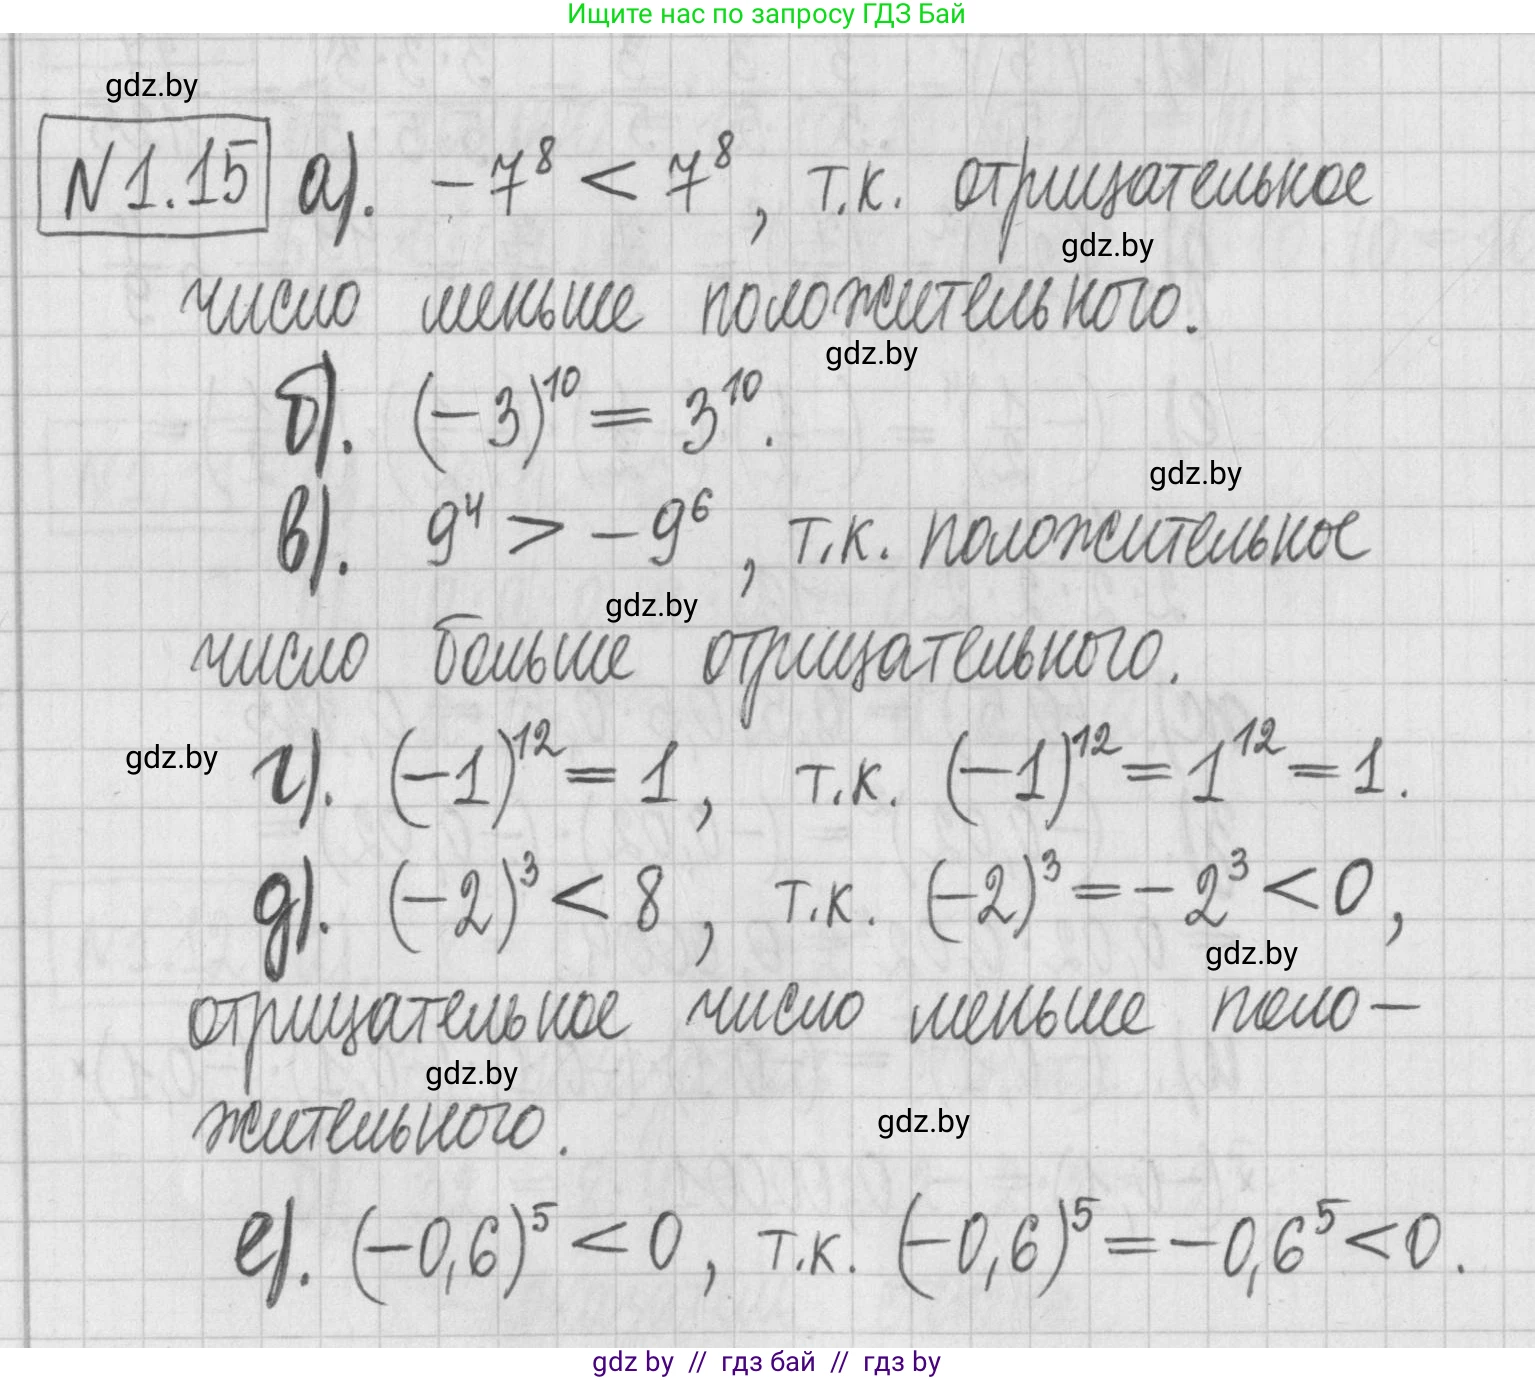 Ищите нас по запросу ГДЗ Бай
gdz.by
N 1.15 а). -7⁸ < 7⁸, т.к. отрицательное
gdz.by
число меньше положительного.
gdz.by
б). (-3)¹⁰ = 3¹⁰.
gdz.by
в). 9⁴ > -9⁶, т.к. положительное
gdz.by
число больше отрицательного.
gdz.by
г). (-1)¹² = 1, т.к. (-1)¹² = 1¹² = 1.
д). (-2)³ < 8, т.к. (-2)³ = -2³ < 0,
gdz.by
отрицательное число меньше поло-
gdz.by
жительного.
gdz.by
е). (-0,6)⁵ < 0, т.к. (-0,6)⁵ = -0,6⁵ < 0.
gdz by // гдз бай // гдз by